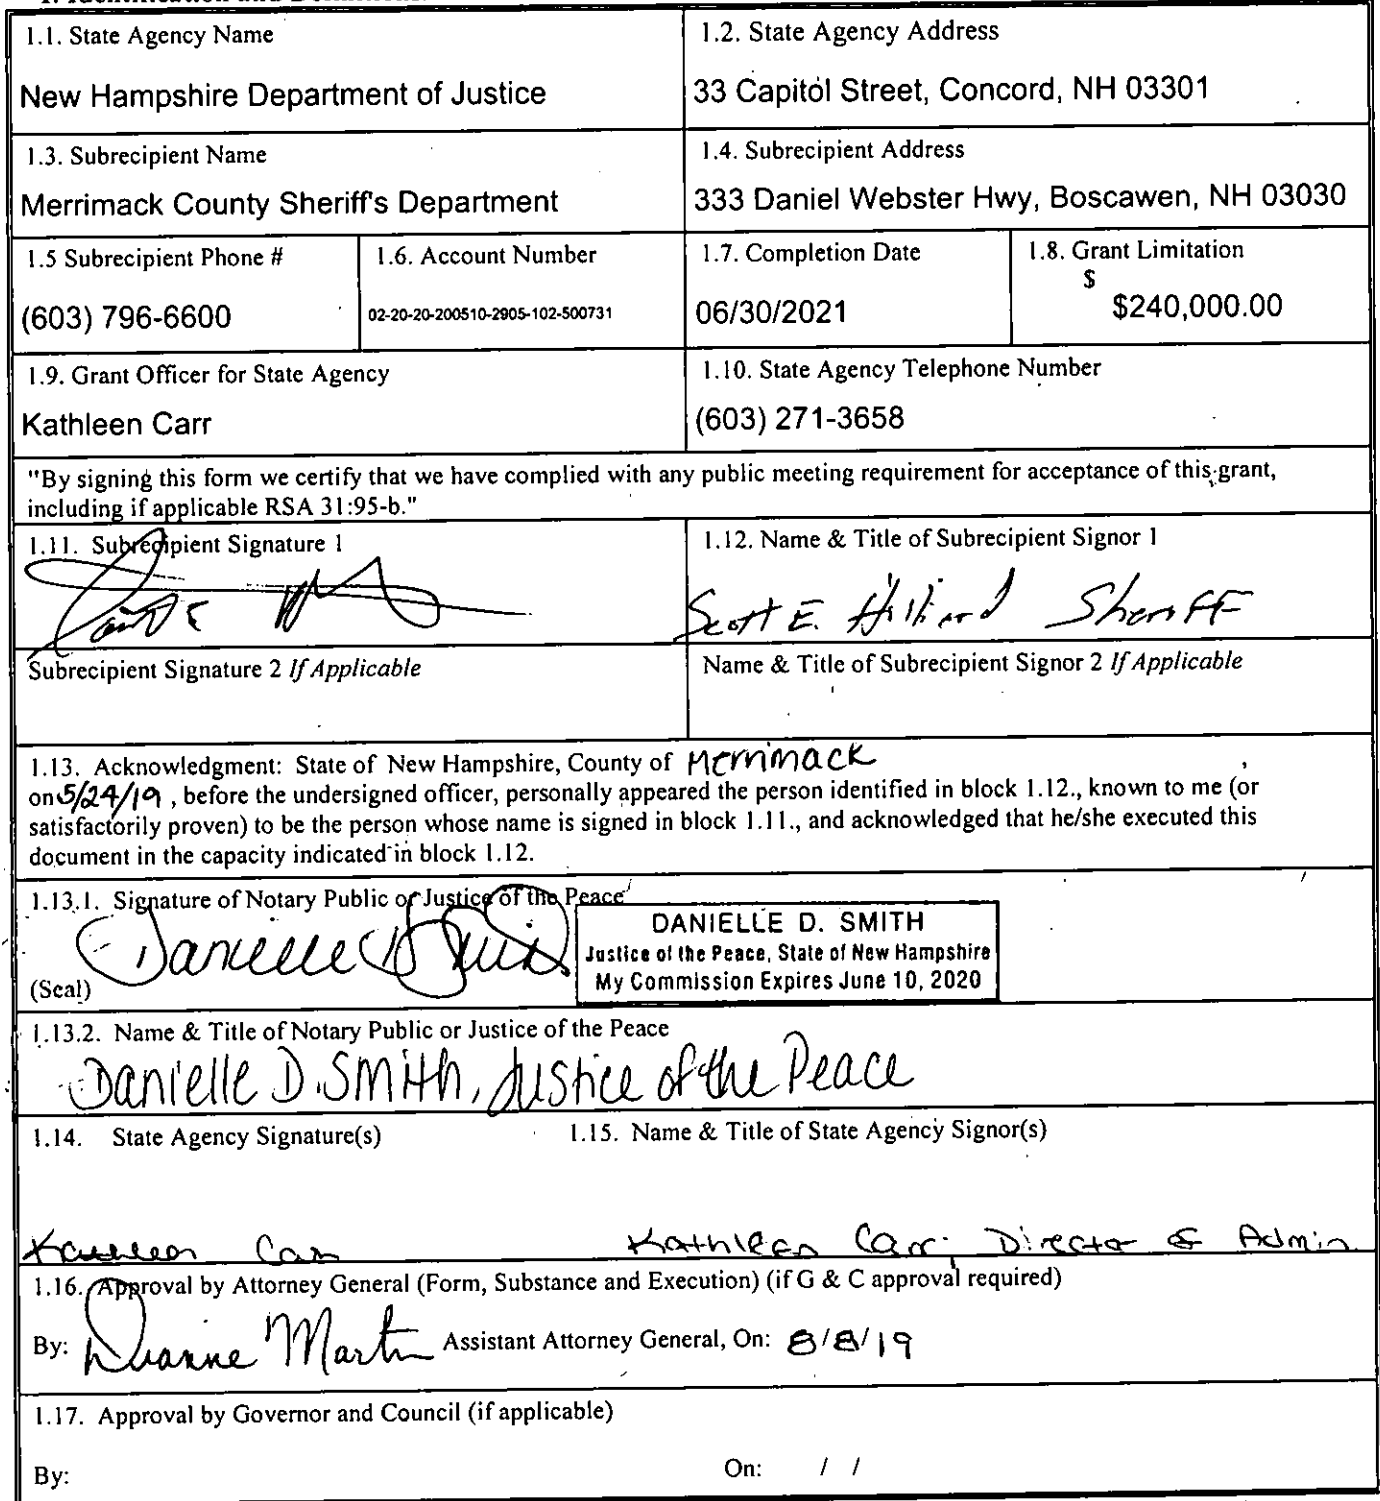 1.1. State Agency Name
New Hampshire Department of Justice
1.2. State Agency Address
33 Capitol Street, Concord, NH 03301
1.3. Subrecipient Name
Merrimack County Sheriff's Department
1.4. Subrecipient Address
333 Daniel Webster Hwy, Boscawen, NH 03030
1.5 Subrecipient Phone #
(603) 796-6600
1.6. Account Number
02-20-20-200510-2905-102-500731
1.7. Completion Date
06/30/2021
1.8. Grant Limitation
$
$240,000.00
1.9. Grant Officer for State Agency
Kathleen Carr
1.10. State Agency Telephone Number
(603) 271-3658
"By signing this form we certify that we have complied with any public meeting requirement for acceptance of this grant,
including if applicable RSA 31:95-b."
1.11. Subrecipient Signature 1
1.12. Name & Title of Subrecipient Signor 1
Scott E. Hilliard Sheriff
Subrecipient Signature 2 If Applicable
Name & Title of Subrecipient Signor 2 If Applicable
1.13. Acknowledgment: State of New Hampshire, County of Merrimack
on 5/24/19, before the undersigned officer, personally appeared the person identified in block 1.12., known to me (or
satisfactorily proven) to be the person whose name is signed in block 1.11., and acknowledged that he/she executed this
document in the capacity indicated in block 1.12.
1.13.1. Signature of Notary Public or Justice of the Peace
Danielle D Smith
(Seal)
DANIELLE D. SMITH
Justice of the Peace, State of New Hampshire
My Commission Expires June 10, 2020
1.13.2. Name & Title of Notary Public or Justice of the Peace
Danielle D. Smith, Justice of the Peace
1.14. State Agency Signature(s)
1.15. Name & Title of State Agency Signor(s)
Kathleen Carr
Kathleen Carr Director of Admin
1.16. Approval by Attorney General (Form, Substance and Execution) (if G & C approval required)
By: Dianne Martin Assistant Attorney General, On: 8/8/19
1.17. Approval by Governor and Council (if applicable)
By: On: / /